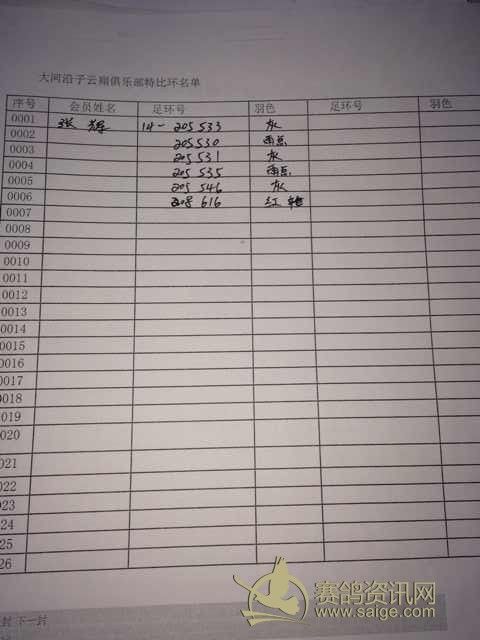 大河沿子云翔俱乐部特比环名单
序号 会员姓名 足环号 羽色 足环号 羽色
0001 张辉 14-205533 灰
0002 205530 雨点
0003 205531 灰
0004 205535 雨点
0005 205546 灰
0006 208616 红
0007
0008
0009
0010
0011
0012
0013
0014
0015
0016
0017
0018
0019
0020
0021
0022
0023
24
25
26
封 下一封
赛鸽资讯网
www.saige.com